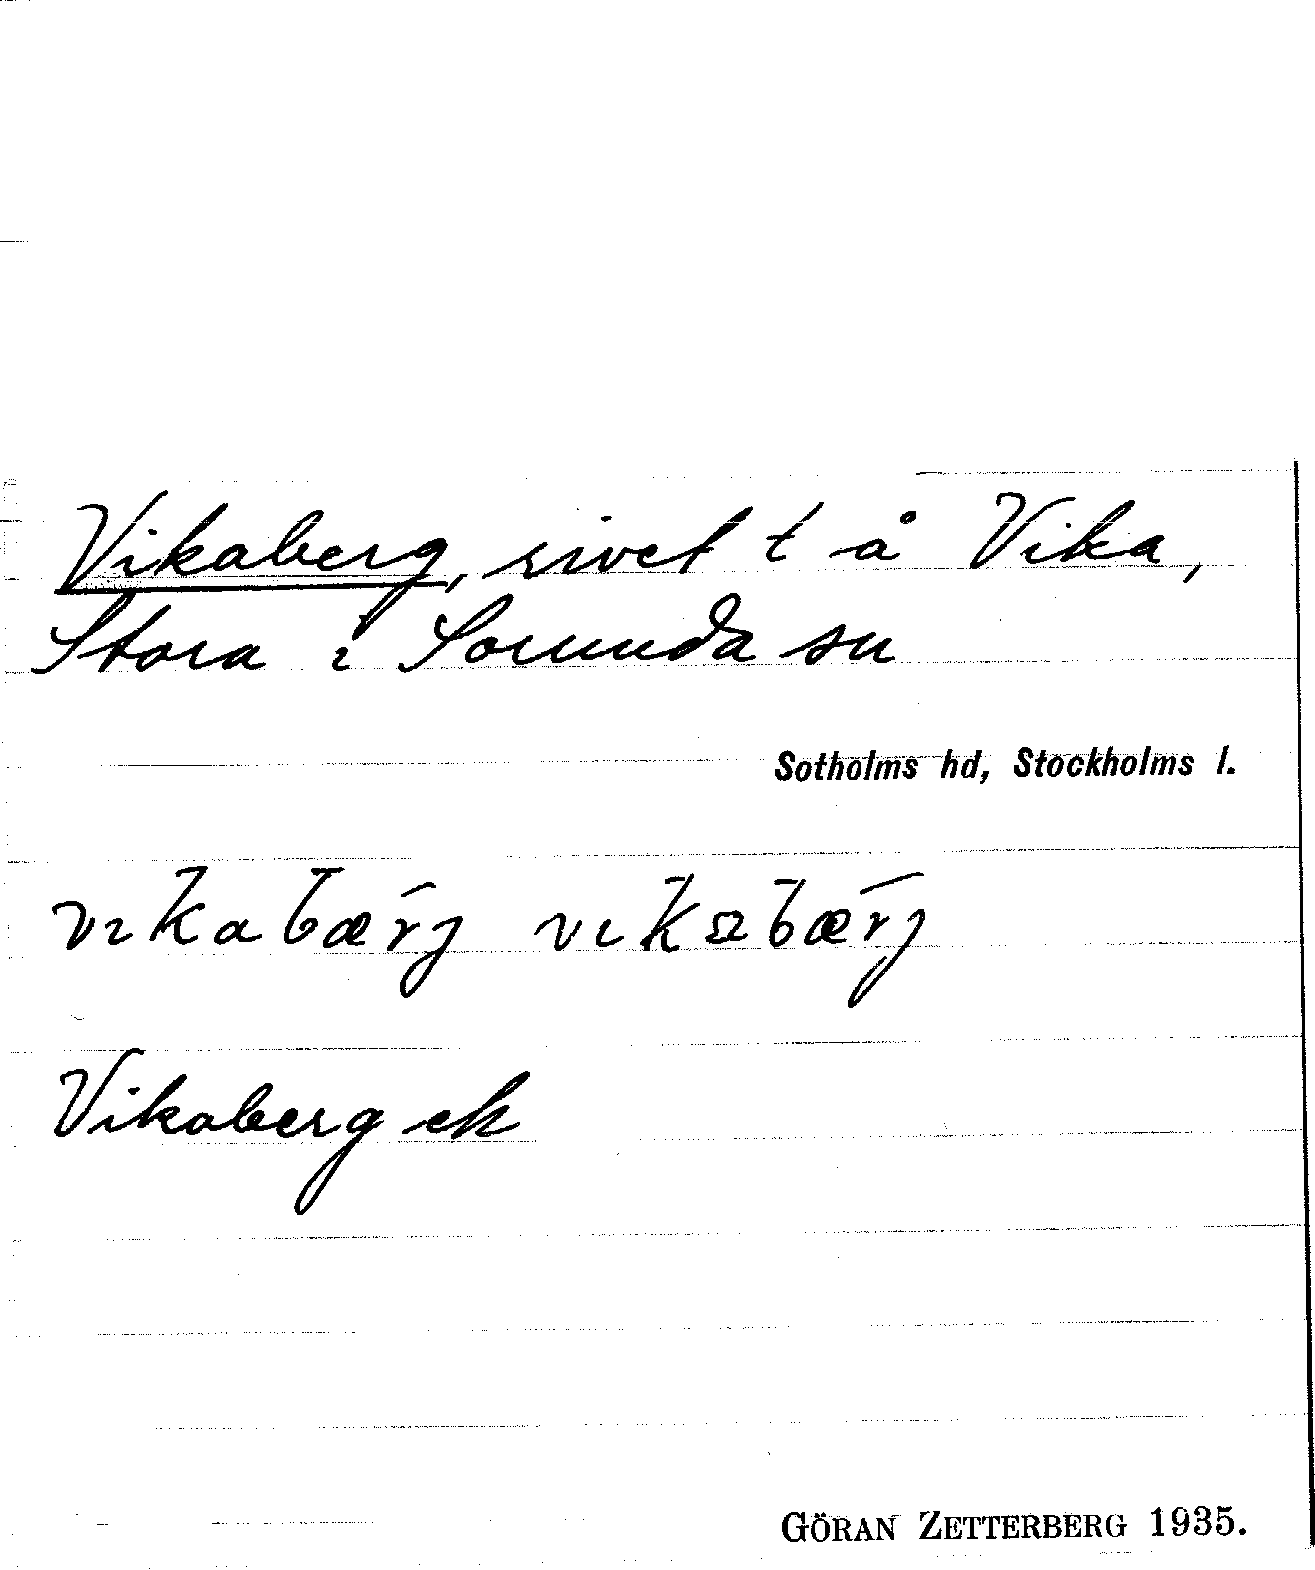 Vikaberg, rivet t å Vika,
Stora i Sorunda sn
Sotholms hd, Stockholms l.
vikabærj vikabærj
Vikaberg ek
GÖRAN ZETTERBERG 1935.